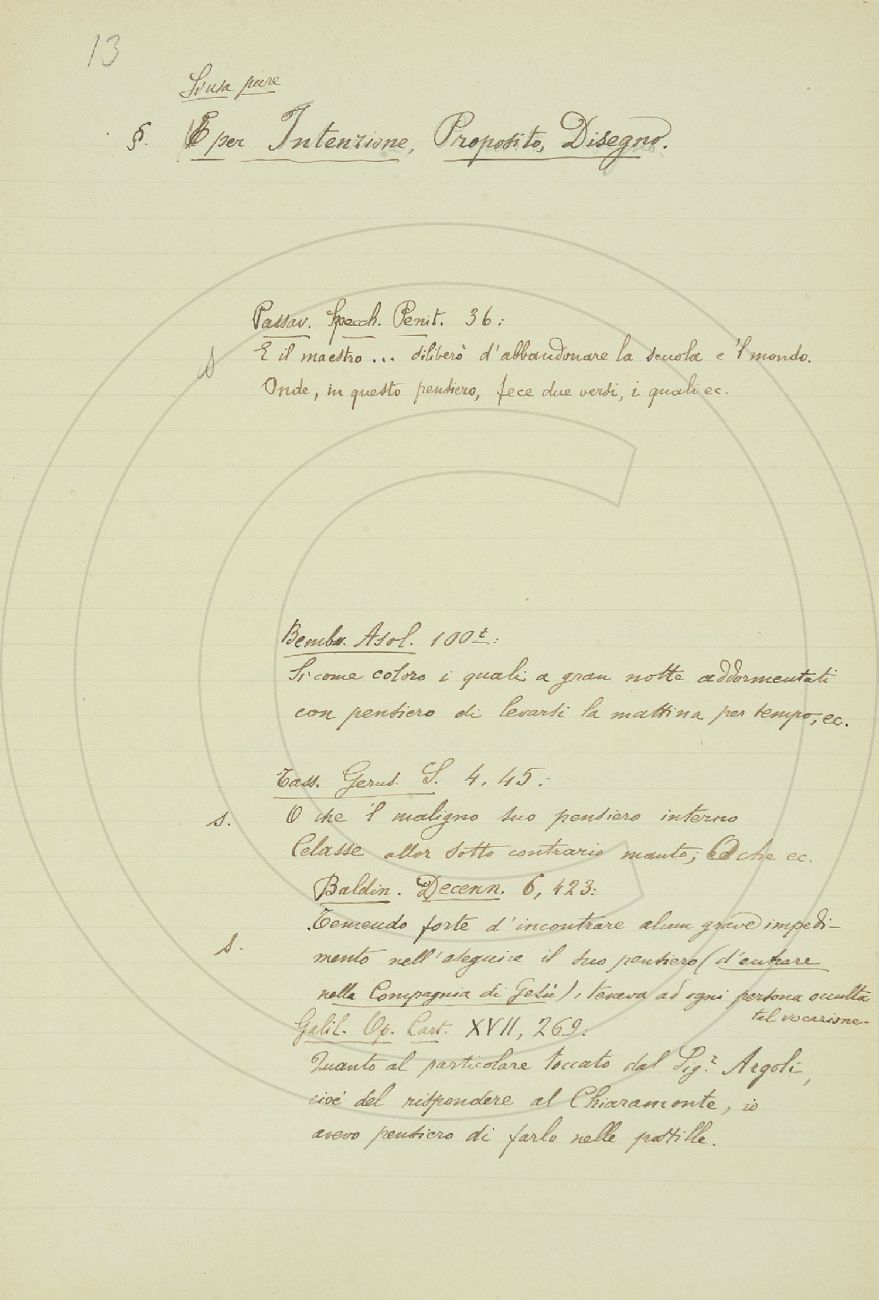 13
Si usa pure
§. E per Intenzione, Proposito, Disegno.
Passav. Specch. Penit. 36:
s E il maestro ... diliberò d'abbandonare la scuola e 'l mondo.
Onde, in questo pensiero, fece due versi, i quali ec.
Bembo. Asol. 100t:
Sì come coloro i quali a gran notte addormentati
con pensiero di levarsi la mattina per tempo, ec.
Tass. Gerus. S. 4, 45:
s. O che 'l maligno suo pensiero interno
Celasse allor sotto contrario manto; O che ec.
Baldin. Decenn. 6, 423:
Temendo forte d'incontrare alcun grave impedi-
s. mento nell'aseguire il suo pensiero (d'entrare
nella Compagnia di Gesù), teneva ad ogni persona occulta
tal vocazione.
Galil. Op. Lett. XVII, 269:
Quanto al particolare toccato dal Sig.r Argoli,
cioè del rispondere al Chiaramonte, io
avevo pensiero di farlo nelle postille.